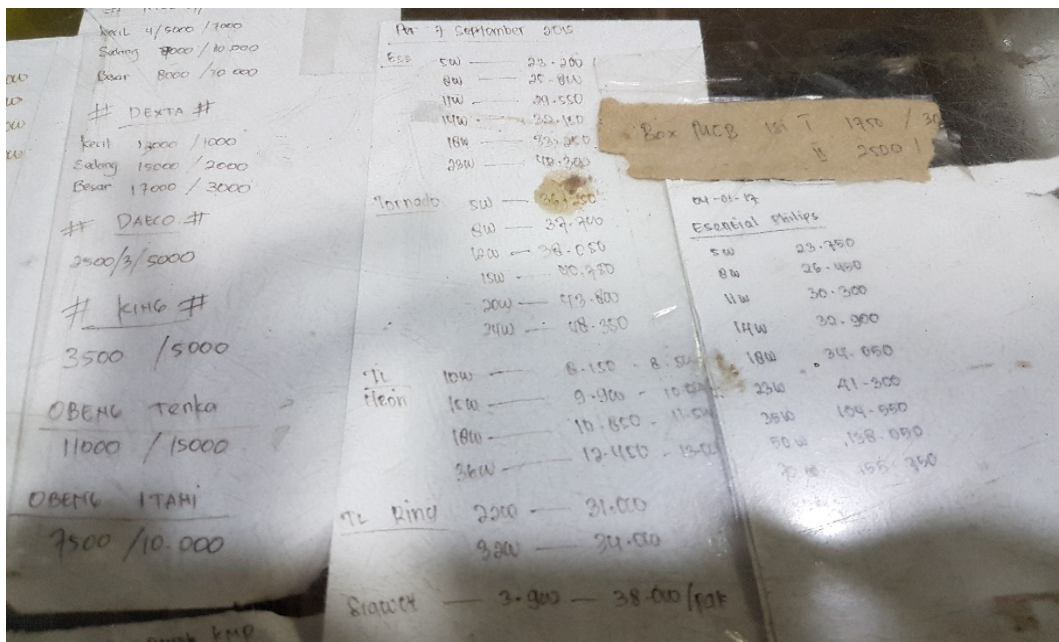 Kecil 4/5000 / 7000
Sedang 7000 / 10.000
Besar 8000 / 10 000
# DEXTA #
Kecil 12000 / 1000
Sedang 15000 / 2000
Besar 17000 / 3000
# DAECO #
2500/3/5000
# KING #
3500 / 5000
OBENG Tenka
11000 / 15000
OBENG ITAMI
7500 / 10.000
Per 7 September 2015
Ess 5W — 23.200
8W — 25.800
11W — 29.550
14W — 32.150
18W — 33.250
23W — 40.300
Tornado 5W —
8W — 37.700
12W — 38.050
15W — 40.750
20W — 43.800
24W — 48.350
TL 10W — 8.150 -
15W — 9.900 -
18W — 10.850 -
36W — 12.450 -
TL Ring 22W — 31.000
32W — 34.000
3.900 — 38.000/pak
Box MCB isi I 1750 /
II 2500 /
04-01-17
Esential Philips
5W 23.750
8W 26.450
11W 30.300
14W 32.900
18W 34.050
23W 41.300
35W 104.550
50W 138.050
155.350